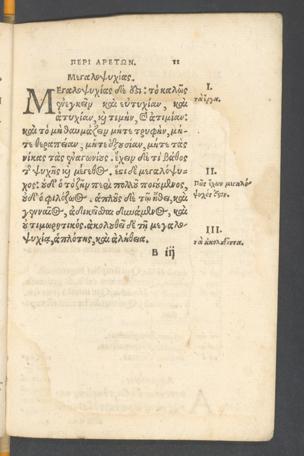 ΠΕΡΙ ΑΡΕΤΩΝ. 11
Μεγαλοψυχίας.
Μεγαλοψυχίας δέ ὅξι: τὸ καλῶς
ἐνεγκεῖν καὶ εὐτυχίαν, καὶ
ἀτυχίαν, κὶ τιμὴν, & ἀτιμίαν:
καὶ τὸ μὴ θαυμάζειν μήτε τρυφὴν, μή-
τε θεραπείαν, μήτε ἐξουσίαν, μήτε τὰς
νίκας τὰς ἐναγωνίους. ἔχειν δέ τι βάθος
τ ψυχῆς κὶ μέγεθ@. ἔστι δὲ μεγαλόψυ-
χος: ὀυδ' ὁ τὸ ζῆν περὶ πολλοῦ ποιούμενος,
ὀυδ' ὁ φιλόζω@. ἁπλοῦς δὲ τῷ ἤθει, καὶ
γενναῖ@, ἀδικεῖσθαι δυνάμεν@, καὶ
οὐ τιμωρητικός. ἀκολουθεῖ δὲ τῇ μεγαλο-
ψυχίᾳ, ἁπλότης, καὶ ἀλήθεια.
B iij
I.
τὰ ἔργα.
II.
Πῶς ἔχων μεγαλό-
ψυχός
III.
τὰ ἀκόλουθα.